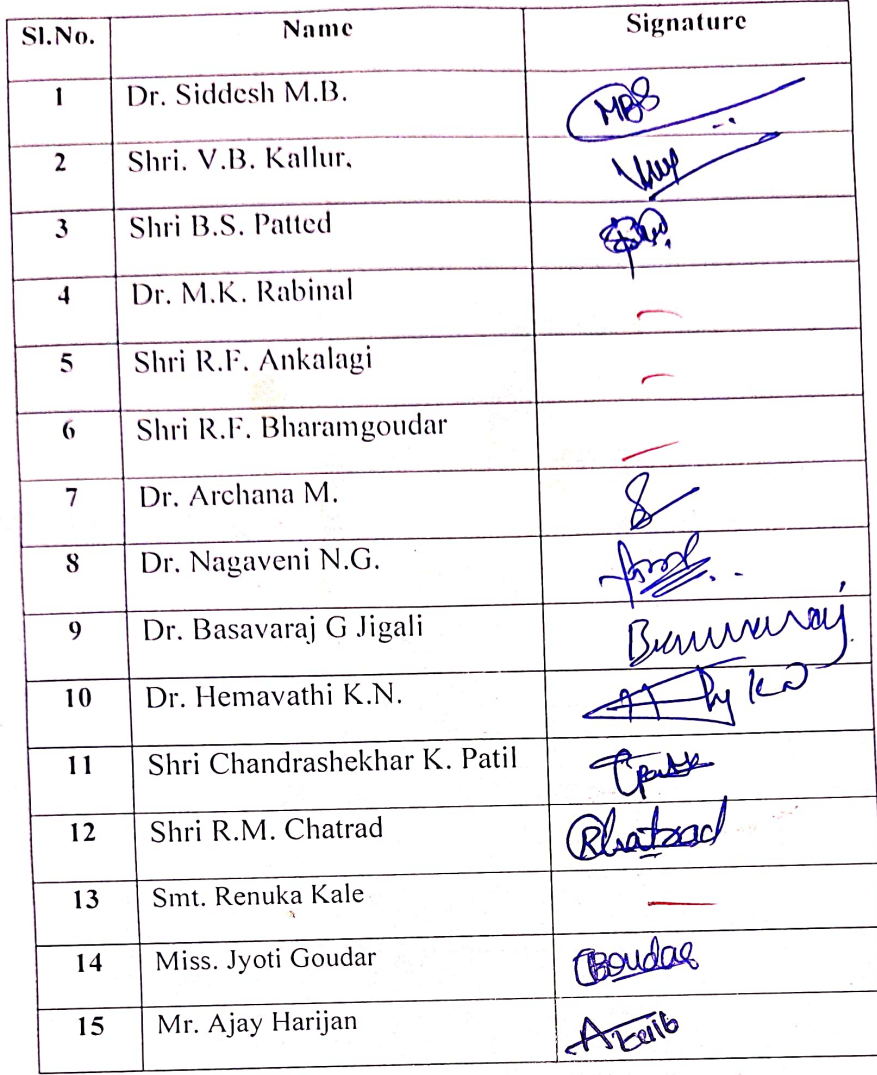 Sl.No. Name Signature
1 Dr. Siddesh M.B. MBS
2 Shri. V.B. Kallur.
3 Shri B.S. Patted
4 Dr. M.K. Rabinal
5 Shri R.F. Ankalagi
6 Shri R.F. Bharamgoudar
7 Dr. Archana M.
8 Dr. Nagaveni N.G.
9 Dr. Basavaraj G Jigali
10 Dr. Hemavathi K.N.
11 Shri Chandrashekhar K. Patil
12 Shri R.M. Chatrad
13 Smt. Renuka Kale
14 Miss. Jyoti Goudar
15 Mr. Ajay Harijan